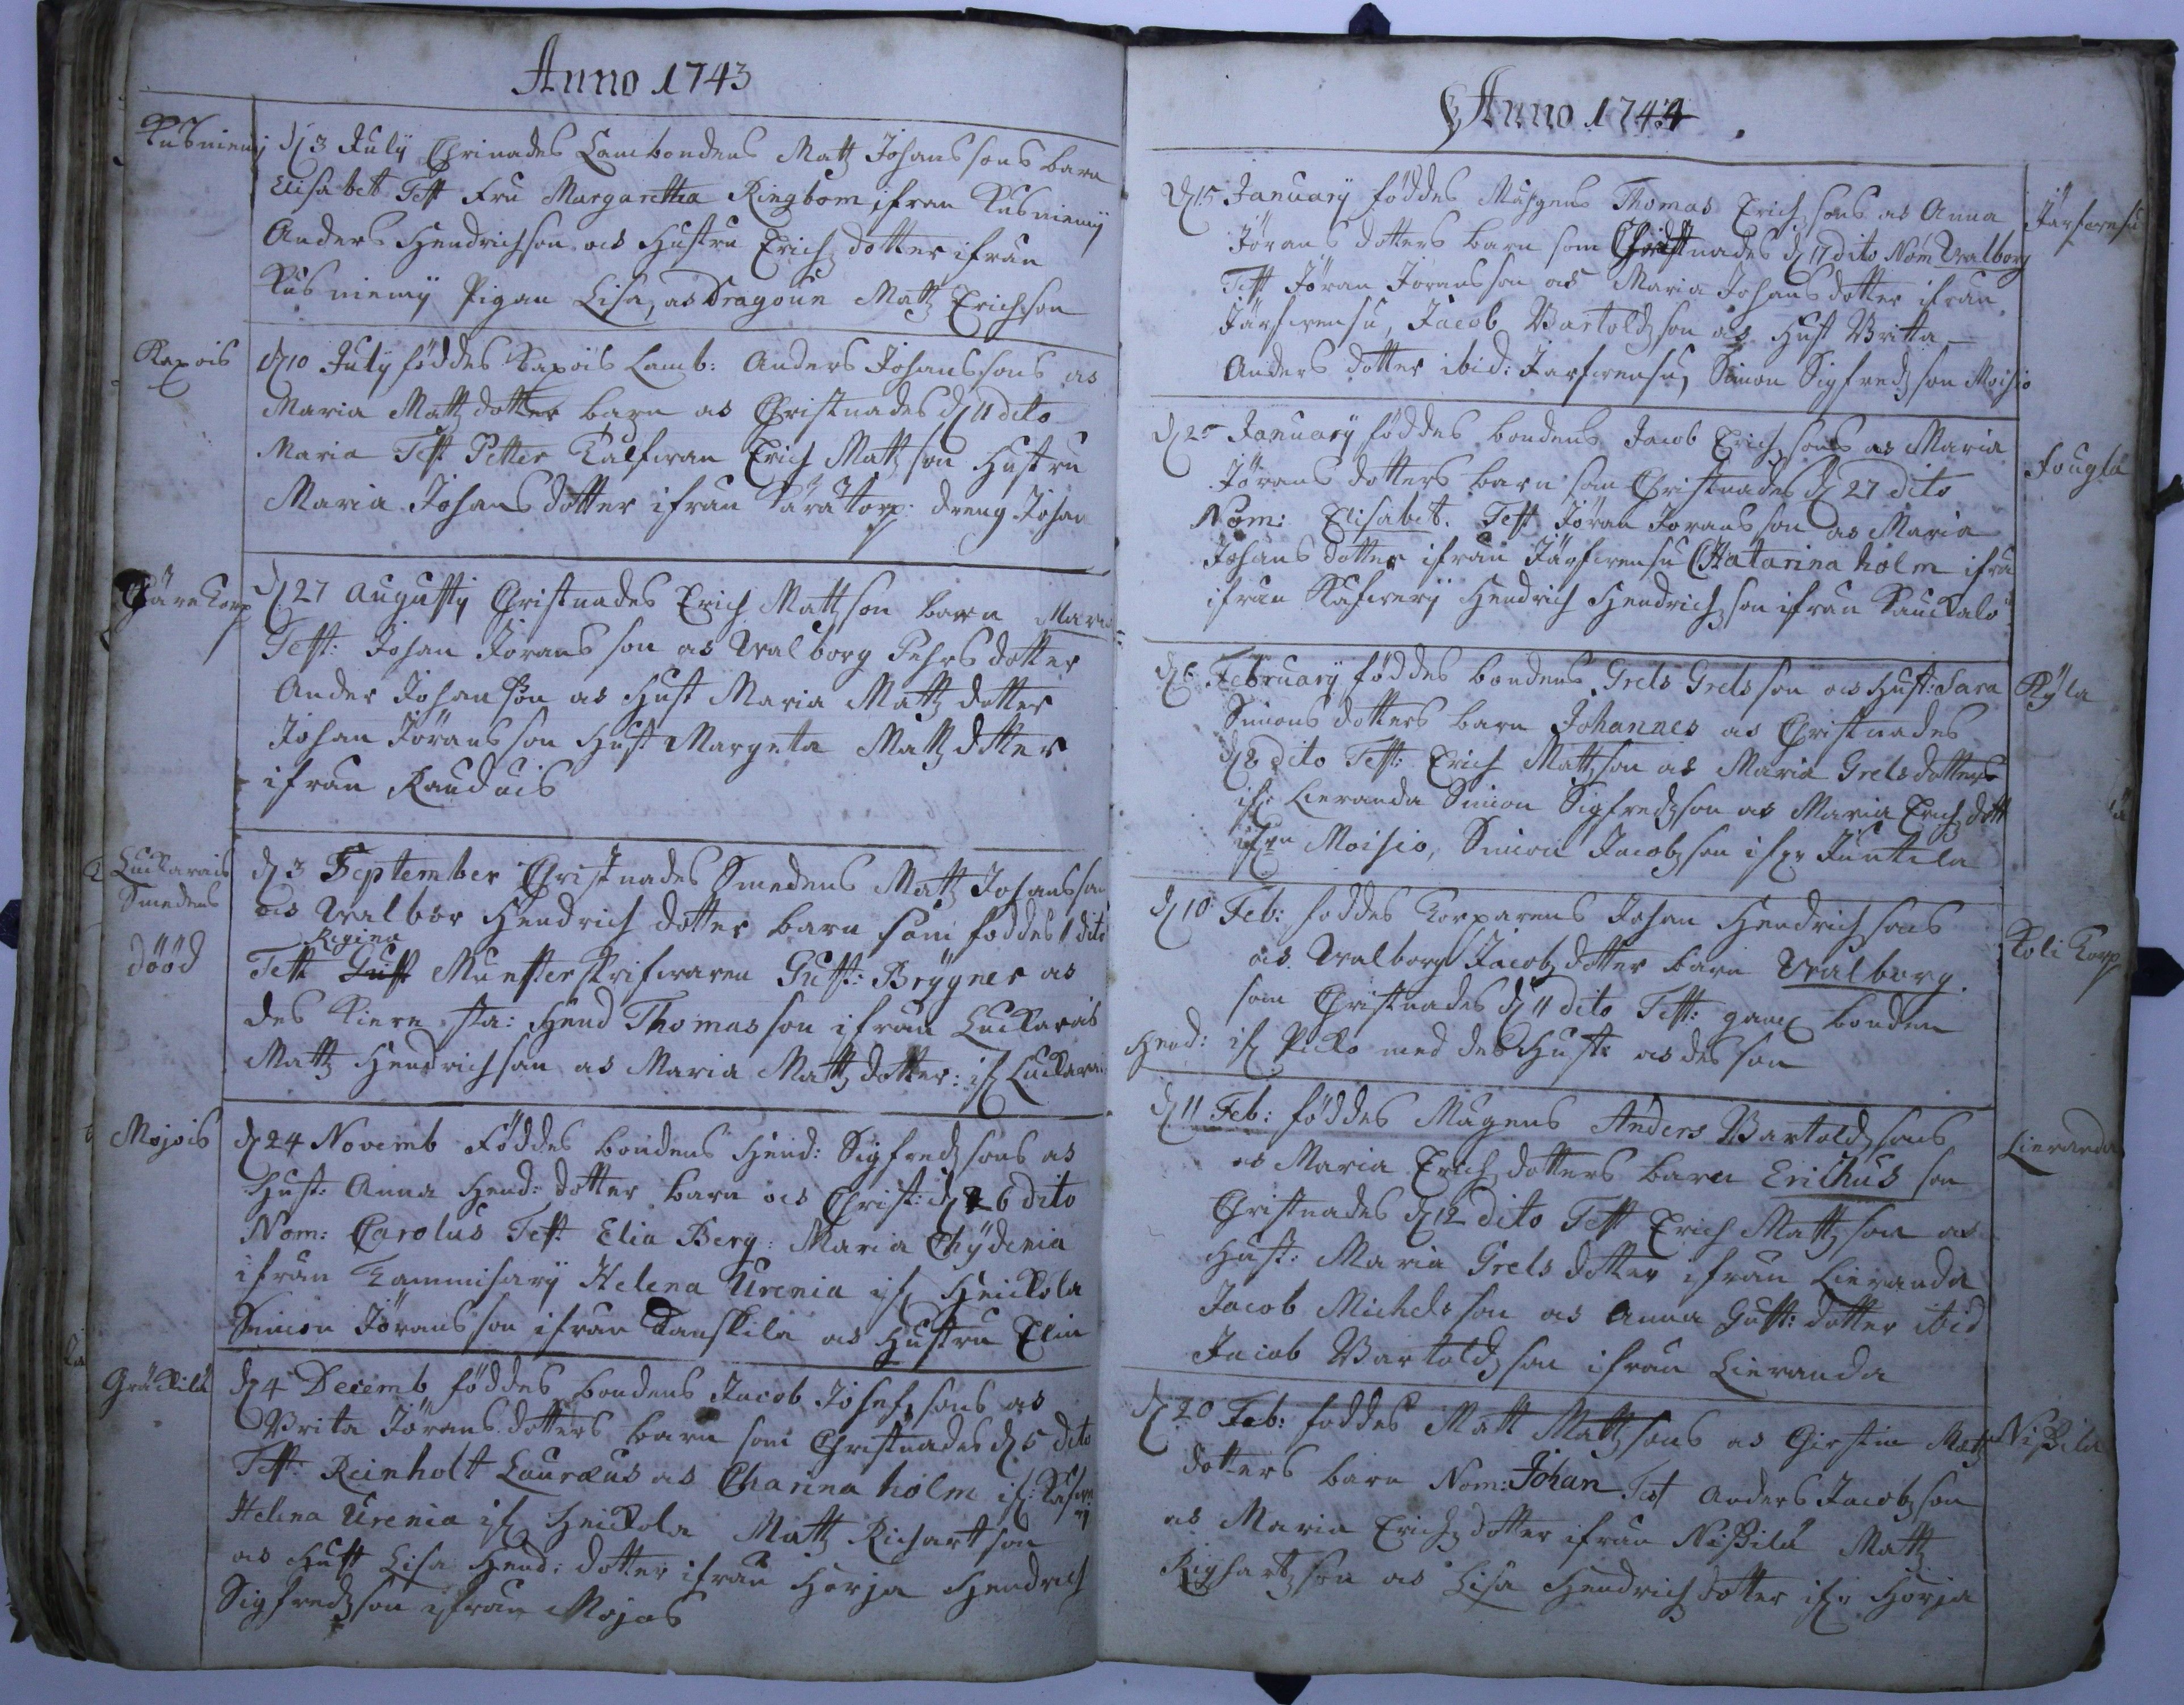 Anno 1743
Kusniemj
dij 3 Julij Chrinades Lambondens Matz Johanssons barn
Elisabet Test Fru Margaretha Ringbom ifrån Kusniemij
Anders Hendrichson as Hustru Erichzdotter ifrån
Kusniemij Pigan Lisa, as Dragoun Matz Erichson
Kaxois
dij 10 Julij föddes Kaxois Lamb: Anders Johanssons as
Maria Matzdotter barn as Christnades dij 11 dito
Maria Test Petter Kalfwan Erich Matzson Hustru
Maria Johansdotter ifrån Päräторp: dreng Johan
Torp
dij 27 Augustij Christnades Erich Mattson barn Mari
Test: Johan Joransson as Walborg Pehrsdotter
Ander Johanson as Hust Maria Matzdotter
Johan Jöransson Hust Margeta Matzdotter
ifrån Rauduis
Luckarais
Smedens
dööd
dij 3 September Christnades Smedens Matz Johansson
as Walbor Hendrichdotter barn som foddes 1 dito
Regina
Test Gust Munsterskrifwaren Gust: Brygner as
des Kiere sta: Hend Thomasson ifrån Luckarais
Matz Hendrichson as Maria Matzdotter: if Luckara
Mojois
dij 24 Novemb Föddes bondens Hend: Sigfredzsons as
Hust: Anna Hend: dotter barn as Christ: dij 26 dito
Nom: Carolus Test Elia Berg: Maria Chydenia
ifrån Kammisarij Helena Urenia if Heickola
Simon Jöransson ifrån Danskila as Hustru Elin
Gräckilä
dij 4 Decemb föddes bondens Jacob Josefzsons as
Brita Jöransdotters barn som Christnades dij 5 dito
Test: Reinholt Lauræus as Charina holm if: Kafwerij
Helena Urenia if Heickola Matz Richartson
as Hust Lisa Hend: dotter ifrån Horja Hendrich
Sigfredzson ifrån Mojos
Anno 1744
dij 15 Januarij föddes Thomas Erichsons as Anna
Jöransdotters barn som Christnades dij 17 dito Nom Walborg
Test Jöran Joransson as Maria Johansdotter ifrån
Järfwensu, Jacob Bartoldzson as Hust Britta
Andersdotter ibid: Jarfwensu, Simon Sigfredzson Moisio
Järfwensu
dij 25 Januarij föddes bondens Jacob Erichsons as Maria
Jöransdotters barn som Christnades dij 27 dito
Nom: Elisabet. Test Jöran Joransson as Maria
Johansdotter ifrån Järfwensu Chatarina holm ifrå
ifrån Kafwerij Hendrich Hendrichson ifrån Kauckalo
Fougla
dij 6 Februarij föddes bondens Grels Grelsson as Hust: Sara
Simonsdotters barn Johannes as Christnades
dij 8 dito Test: Erich Mattson as Maria Grelsdotters
if: Lieranda Simon Sigfredzson as Maria Erichzdott
ifrån Moisio, Simon Jacobzson ifrå Juntila
Kÿla
dij 10 Feb: foddes Torparens Johan Hendrichsons
as Walborg Jacobzdotter barn Walborg.
som Christnades dij 11 dito Test: gam bonden
Hend: if Picko med des Hust: as des son
Koli Torp
dij 11 Feb: föddes Anders Bartoldzsons
as Maria Erichzdotters barn Erichus som
Christnades dij 12 dito Test Erich Matzson as
Hust: Maria Grelsdotter ifrån Lieranda
Jacob Michelsson as Anna Gust: dotter ibid
Jacob Bartoldzson ifrån Lieranda
Lieranda
dij 20 Feb: foddes Matt Matzsons as Chirstin Matz
dotters barn Nom: Johan Test Anders Jacobzson
as Maria Erichzdotter ifrån Nissilä Matz
Righartzson as Lisa Hendrichdotter if: Horja
Nissila